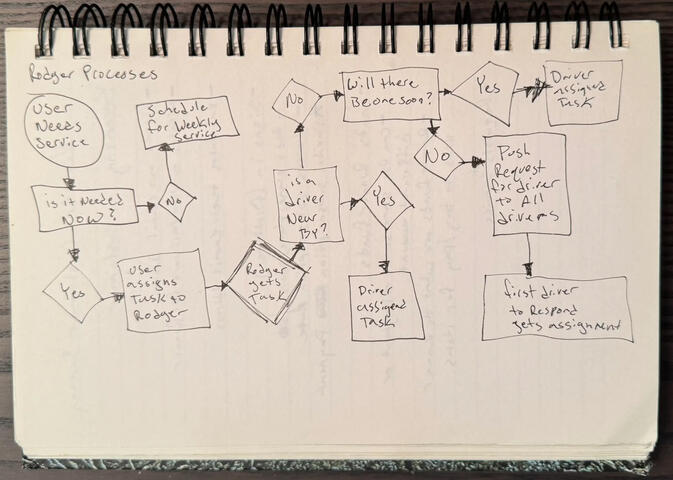 Rodger Processes
User
Needs
Service
Schedule
for Weekly
Service
is it Needed
NOW?
No
Yes
User
assigns
Task to
Rodger
Rodger
gets
Task
is a
driver
Near
By?
No
Yes
Driver
assigned
Task
Will there
Be one soon?
Yes
Driver
assigned
Task
No
Push
Request
for driver
to All
drivers
first driver
to Respond
gets assignment